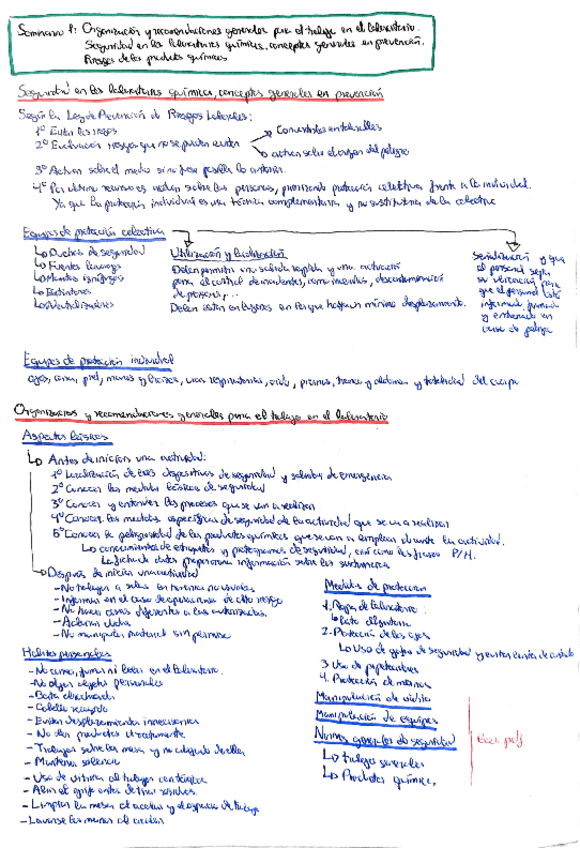 Seminario 1: Organización y recomendaciones generales para el trabajo en el laboratorio.
Seguridad en los laboratorios químicos, conceptos generales en prevención.
Riesgos de los productos químicos
Seguridad en los laboratorios químicos, conceptos generales en prevención
Según la Ley de Prevención de Riesgos Laborales:
1º Evitar los riesgos
2º Evaluación riesgos que no se puedan evitar
Combatirlos
actuar sobre el origen del peligro
3º Actuar sobre el medio si no fuese posible lo anterior.
4º Por último recurso es actuar sobre las personas, priorizando protección colectiva frente a la individual.
Ya que la protección individual es una técnica complementaria y no sustitutiva de la colectiva
Equipos de protección colectiva
Duchas de seguridad
Fuentes lavaojos
Mantas ignífugas
Extintores
Utilización y localización
Deben permitir una salida rápida y una actuación
para el control de incidentes, como incendios, descontaminación
de personas, ...
Deben estar en lugares en los que haya un mínimo desplazamiento.
Señalización y que
el personal sepa
su ubicación para
que el personal esté
informado, formado
y entrenado en
caso de peligro
Equipos de protección individual
ojos, caras, piel, manos y brazos, vías respiratorias, oído, piernas, tronco y abdomen y totalidad del cuerpo
Organización y recomendaciones generales para el trabajo en el laboratorio
Aspectos básicos
Antes de iniciar una actividad:
1º Localización de los dispositivos de seguridad y salidas de emergencia
2º Conocer las medidas básicas de seguridad
3º Conocer y entender los procesos que se van a realizar
4º Conocer las medidas específicas de seguridad de la actividad que se va a realizar
5º Conocer la peligrosidad de los productos químicos que se van a emplear durante la actividad.
conocimiento de etiquetas y pictogramas de seguridad, así como las frases P/H.
La ficha de datos proporciona información sobre las sustancias
Después de iniciar una actividad
- No trabajar a solas
- Informar en el caso de operaciones de alto riesgo
- No hacer cosas diferentes a las autorizadas.
- Aclarar dudas
- No manipular material sin permiso
Hábitos personales
- No comer, fumar ni beber en el laboratorio.
- No dejar objetos personales
- Bata abrochada
- Cabello recogido
- Evitar desplazamientos innecesarios
- No oler productos directamente
- Trabajar sobre la mesa y no
- Mantener silencio
- Uso de vitrina al trabajar con tóxicos
- Abrir el grifo antes de tirar residuos.
- Limpiar la mesa al acabar y el espacio de trabajo
- Lavarse las manos al acabar
Medidas de protección
1. Ropa de laboratorio:
bata
2. Protección de los ojos
Uso de gafas de seguridad y evitar lentes de contacto
3 Uso de
4. Protección de manos
Manipulación de vidrio
Manipulación de equipos
Normas generales de seguridad
trabajos generales
Productos químicos.
pdf